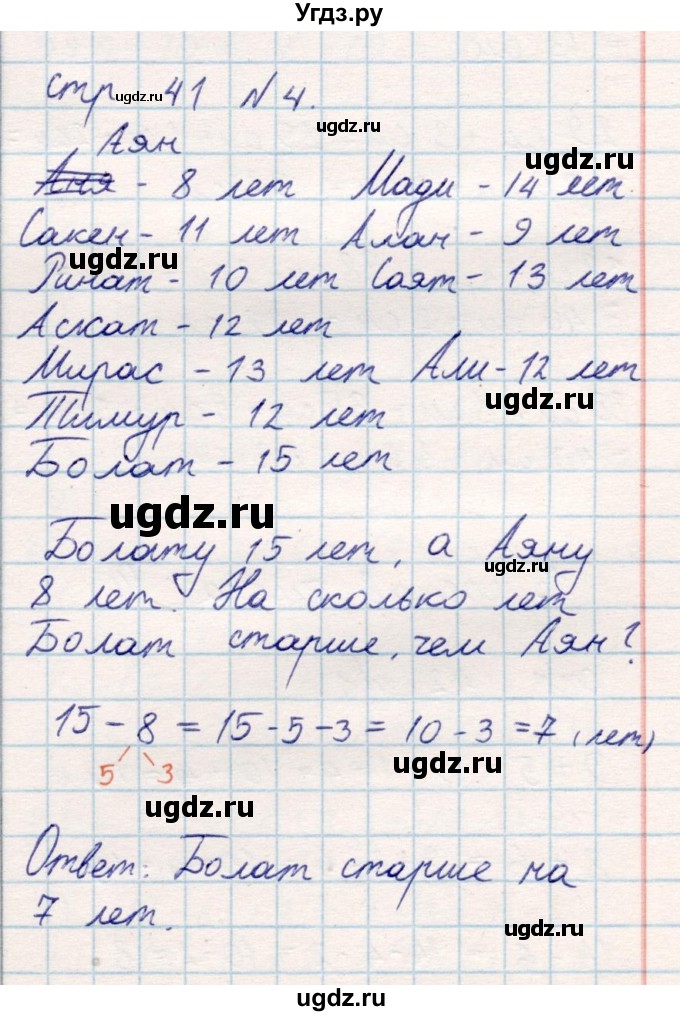 Угдз.ру
стр 41 № 4.
Аян
Аня - 8 лет Мади - 14 лет.
Сакен - 11 лет Алан - 9 лет
Ринат - 10 лет Саят - 13 лет
Аскат - 12 лет
Мирас - 13 лет Али - 12 лет
Тимур - 12 лет
Болат - 15 лет
Болату 15 лет, а Аяну
8 лет. На сколько лет
Болат старше, чем Аян?
15 - 8 = 15 - 5 - 3 = 10 - 3 = 7 (лет)
5 3
Ответ: Болат старше на
7 лет.
ugdz.ru
ugdz.ru
ugdz.ru
ugdz.ru
ugdz.ru
ugdz.ru
ugdz.ru
ugdz.ru
ugdz.ru
ugdz.ru
ugdz.ru